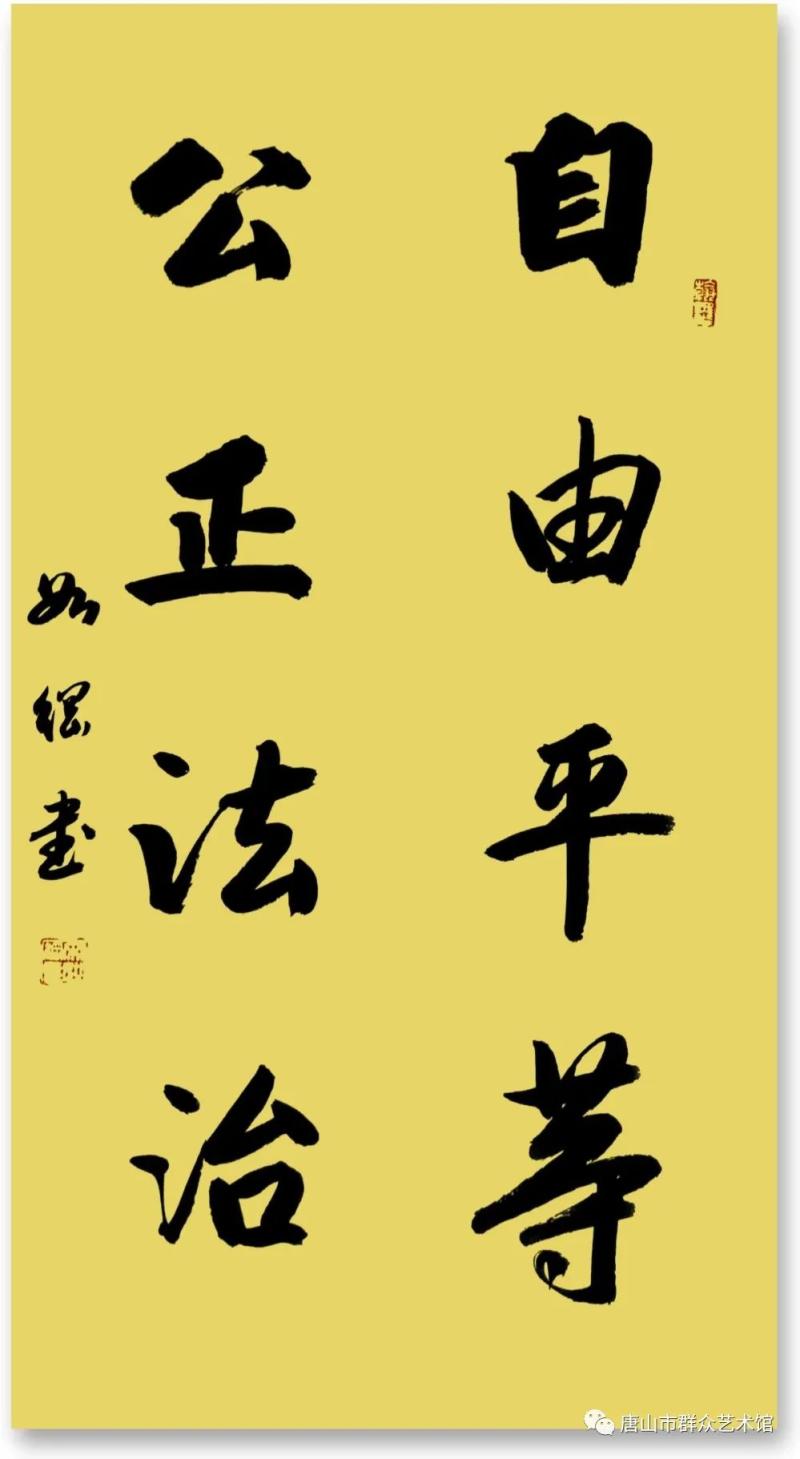 自由平等
公正法治
如鋼書
唐山市群众艺术馆